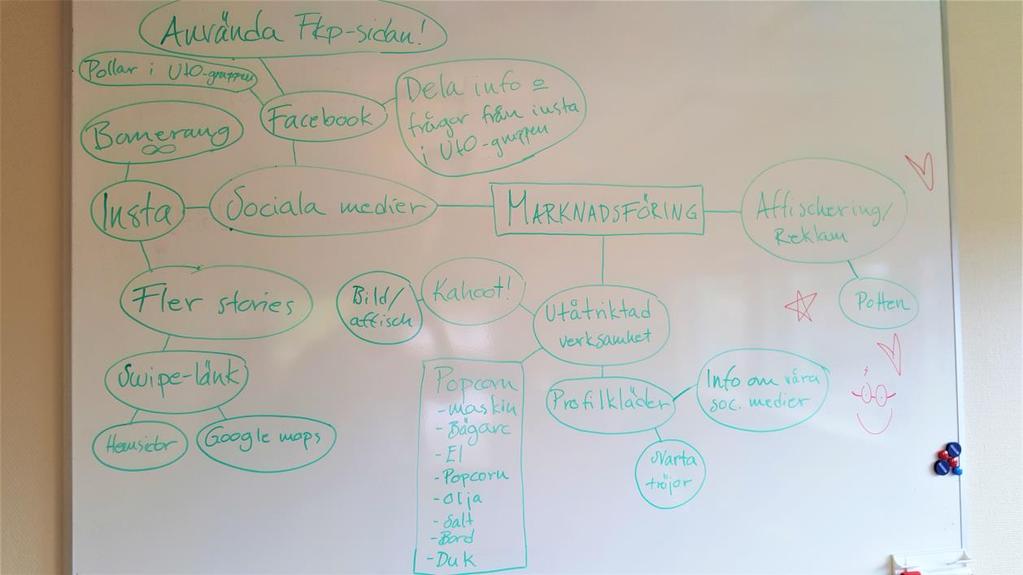 Använda Fkp-sidan!
Pollar i UtO-gruppen
Facebook
Dela info o
frågor från insta
i UtO-gruppen
Bomerang
∞
Insta
Sociala medier
MARKNADSFÖRING
Affischering/
Reklam
Potten
Fler stories
Swipe-länk
Hemsidor
Google maps
Bild/
affisch
Kahoot!
Utåtriktad
verksamhet
Popcorn
-maskin
-Bägare
-El
-Popcorn
-Olja
-Salt
-Bord
-Duk
Profilkläder
Info om våra
soc. medier
Svarta
tröjor